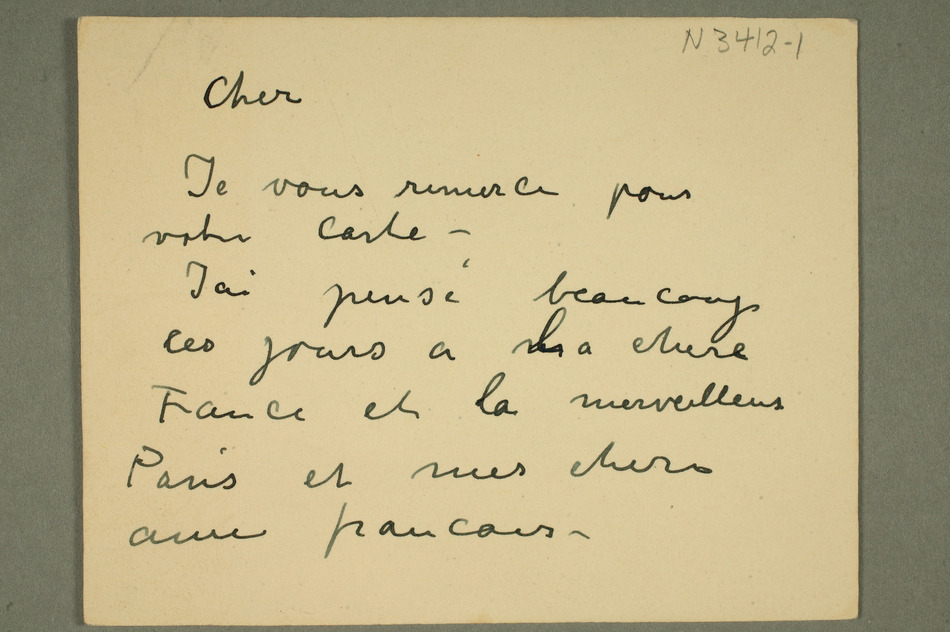 N 3412-1
Cher
Je vous remerce pour
votre carte -
Jai pensé beaucoup
ces jours a la chere
Fance et la merveilleus
Paris et mes chers
amie francais -